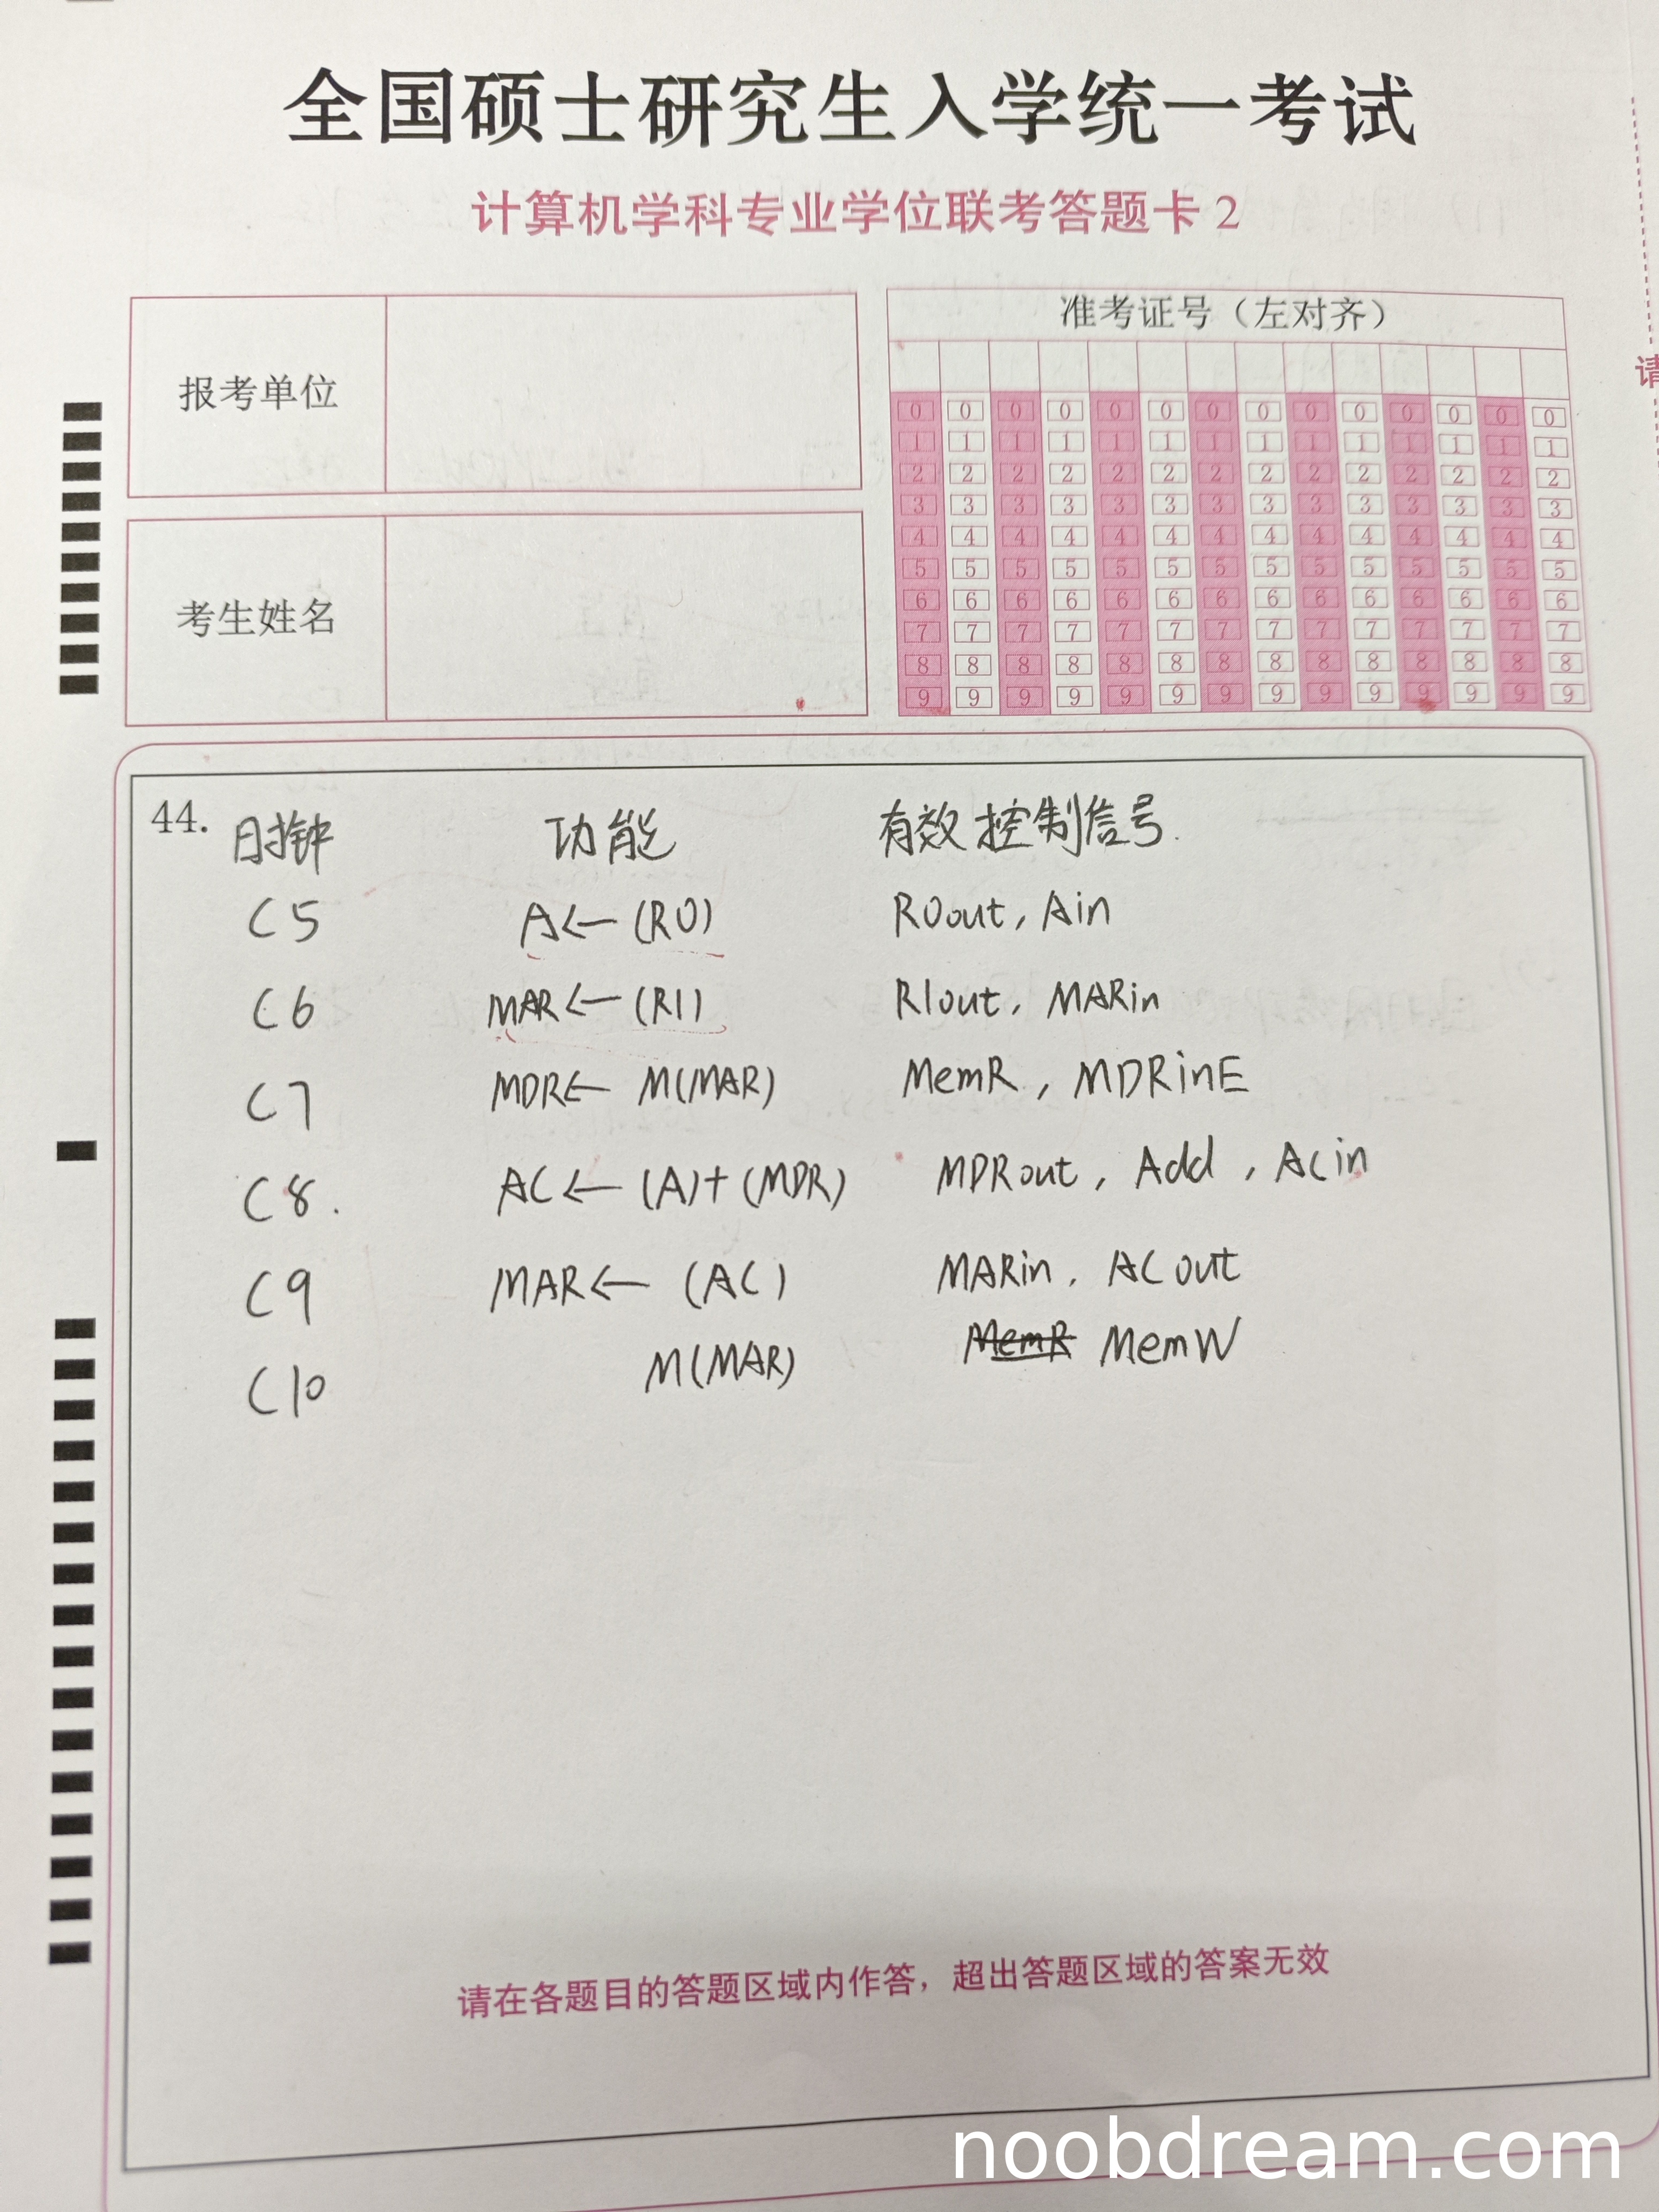 全国硕士研究生入学统一考试
计算机学科专业学位联考答题卡 2
报考单位
考生姓名
准考证号（左对齐）
0 0 0 0 0 0 0 0 0 0 0 0 0 0
1 1 1 1 1 1 1 1 1 1 1 1 1 1
2 2 2 2 2 2 2 2 2 2 2 2 2 2
3 3 3 3 3 3 3 3 3 3 3 3 3 3
4 4 4 4 4 4 4 4 4 4 4 4 4 4
5 5 5 5 5 5 5 5 5 5 5 5 5 5
6 6 6 6 6 6 6 6 6 6 6 6 6 6
7 7 7 7 7 7 7 7 7 7 7 7 7 7
8 8 8 8 8 8 8 8 8 8 8 8 8 8
9 9 9 9 9 9 9 9 9 9 9 9 9 9
请
44. 时钟 功能 有效控制信号.
C5 A← (R0) R0out, Ain
C6 MAR← (R1) R1out, MARin
C7 MDR← M(MAR) MemR, MDRinE
C8. AC← (A)+(MDR) MDRout, Add, ACin
C9 MAR← (AC) MARin, ACout
C10 M(MAR) MemR MemW
请在各题目的答题区域内作答，超出答题区域的答案无效
noobdream.com